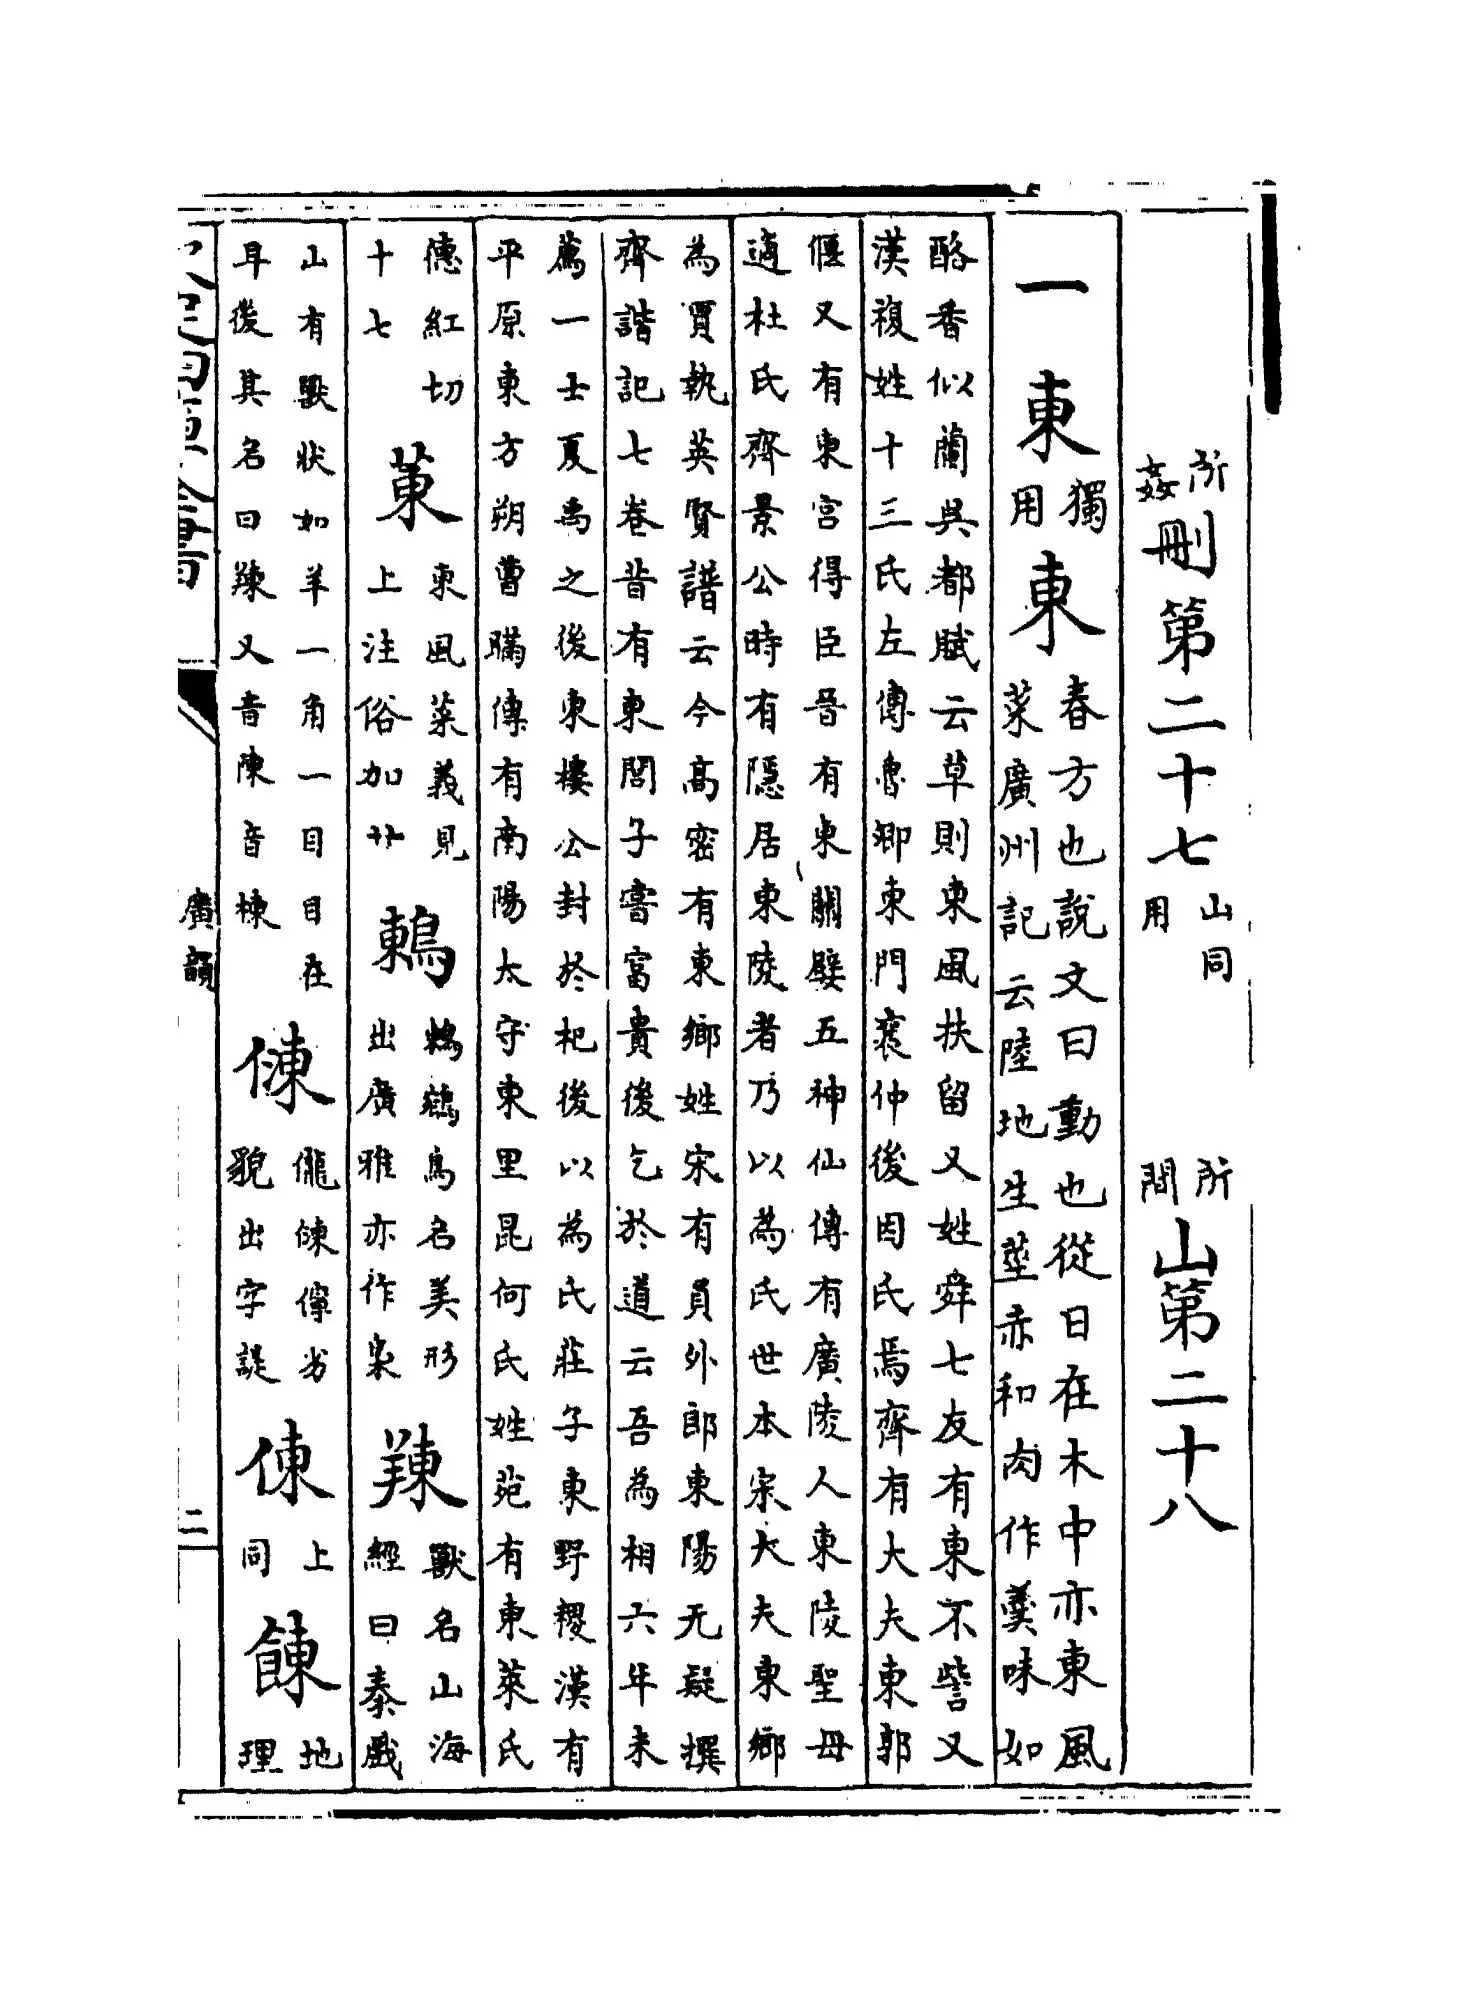 所姦刪第二十七山同用 所間山第二十八
一東獨用東春方也說文曰動也從日在木中亦東風菜廣州記云陸地生莖赤和肉作羹味如
酪香似蘭吳都賦云草則東風扶留又姓舜七友有東不訾又漢複姓十三氏左傳魯卿東門襄仲後因氏焉齊有大夫東郭
偃又有東宮得臣晉有東關嬖五神仙傳有廣陵人東陵聖母適杜氏齊景公時有隱居東陵者乃以為氏世本宋大夫東鄉
為賈執英賢譜云今高密有東鄉姓宋有員外郎東陽无疑撰齊諧記七卷昔有東閭子嘗富貴後乞於道云吾為相六年未
薦一士夏禹之後東樓公封於杞後以為氏莊子東野稷漢有平原東方朔曹瞞傳有南陽太守東里昆何氏姓苑有東萊氏
德紅切十七 菄東風菜義見上注俗加艹 鶇鶇鵍鳥名美形出廣雅亦作 䍶獸名山海經曰泰戲
山有獸狀如羊一角一目目在耳後其名曰䍶又音陳音棟 𠍀儱𠍀儜劣貌出字諟 倲上同 䭉地理
廣韻
二